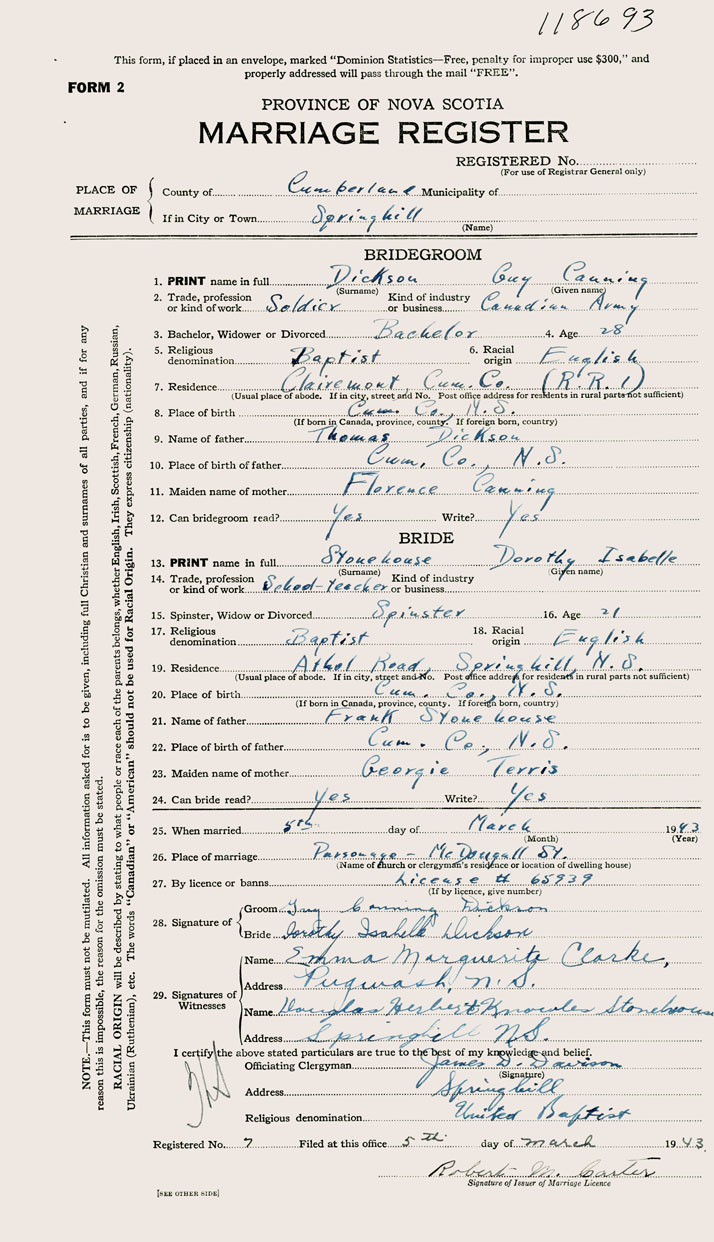 118693
This form, if placed in an envelope, marked "Dominion Statistics—Free, penalty for improper use $300," and
properly addressed will pass through the mail "FREE".
FORM 2
PROVINCE OF NOVA SCOTIA
MARRIAGE REGISTER
REGISTERED No.
(For use of Registrar General only)
PLACE OF MARRIAGE
County of Cumberland Municipality of
If in City or Town Springhill
(Name)
BRIDEGROOM
1. PRINT name in full Dickson Guy Canning
(Surname) (Given name)
2. Trade, profession or kind of work Soldier Kind of industry or business Canadian Army
3. Bachelor, Widower or Divorced Bachelor 4. Age 28
5. Religious denomination Baptist 6. Racial origin English
7. Residence Clairemont, Cum. Co. (R.R. 1)
(Usual place of abode. If in city, street and No. Post office address for residents in rural parts not sufficient)
8. Place of birth Cum. Co., N.S.
(If born in Canada, province, county. If foreign born, country)
9. Name of father Thomas Dickson
10. Place of birth of father Cum. Co., N.S.
11. Maiden name of mother Florence Canning
12. Can bridegroom read? Yes Write? Yes
BRIDE
13. PRINT name in full Stonehouse Dorothy Isabelle
(Surname) (Given name)
14. Trade, profession or kind of work School-teacher Kind of industry or business
15. Spinster, Widow or Divorced Spinster 16. Age 21
17. Religious denomination Baptist 18. Racial origin English
19. Residence Athol Road, Springhill, N.S.
(Usual place of abode. If in city, street and No. Post office address for residents in rural parts not sufficient)
20. Place of birth Cum. Co., N.S.
(If born in Canada, province, county. If foreign born, country)
21. Name of father Frank Stonehouse
22. Place of birth of father Cum. Co., N.S.
23. Maiden name of mother Georgie Terris
24. Can bride read? Yes Write? Yes
25. When married 5th day of March 1943
(Month) (Year)
26. Place of marriage Parsonage - McDougall St.
(Name of church or clergyman's residence or location of dwelling house)
27. By licence or banns License # 65939
(If by licence, give number)
28. Signature of
Groom Guy Canning Dickson
Bride Dorothy Isabelle Dickson
29. Signatures of Witnesses
Name Emma Marguerite Clarke,
Address Pugwash, N.S.
Name Douglas Herbert Knowles Stonehouse
Address Springhill N.S.
I certify the above stated particulars are true to the best of my knowledge and belief.
Officiating Clergyman James D. Davison
(Signature)
Address Springhill
Religious denomination United Baptist
Registered No. 7 Filed at this office 5th day of March 1943.
Robert M. Carter
Signature of Issuer of Marriage Licence
[SEE OTHER SIDE]
NOTE.—This form must not be mutilated. All information asked for is to be given, including full Christian and surnames of all parties, and if for any
reason this is impossible, the reason for the omission must be stated.
RACIAL ORIGIN will be described by stating to what people or race each of the parents belongs, whether English, Irish, Scottish, French, German, Russian,
Ukrainian (Ruthenian), etc. The words "Canadian" or "American" should not be used for Racial Origin. They express citizenship (nationality).